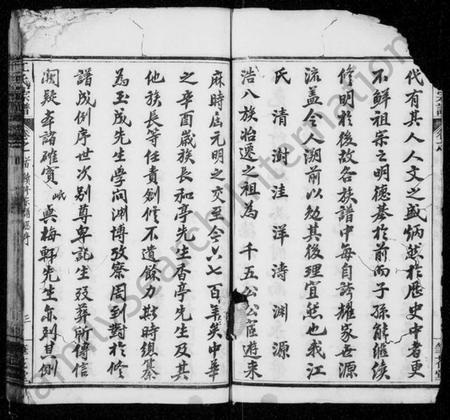 代有其人人文之盛炳然於歷史中者更
不鮮祖宗之明德基於前而子孫能繼續
修明於後故各族譜中每自誇耀家世源
流蓋令人溯前以勉其後理宜然也我江
氏清澍洼洋濤淵源
浩八族怡遷之祖為千五公公區遊來
麻時屆元明之交至今六七百年矣中華
之辛酉歲族長和亭先生香亭先生及其
他族長等任責創修不遺餘力斯時鎮纂
為玉成先生學問淵博攷察周到對於修
譜成例序世次別尊卑託生歿葬所傳信
闕疑考諸確實岷與梅軒先生亦列其側
FamilySearch International